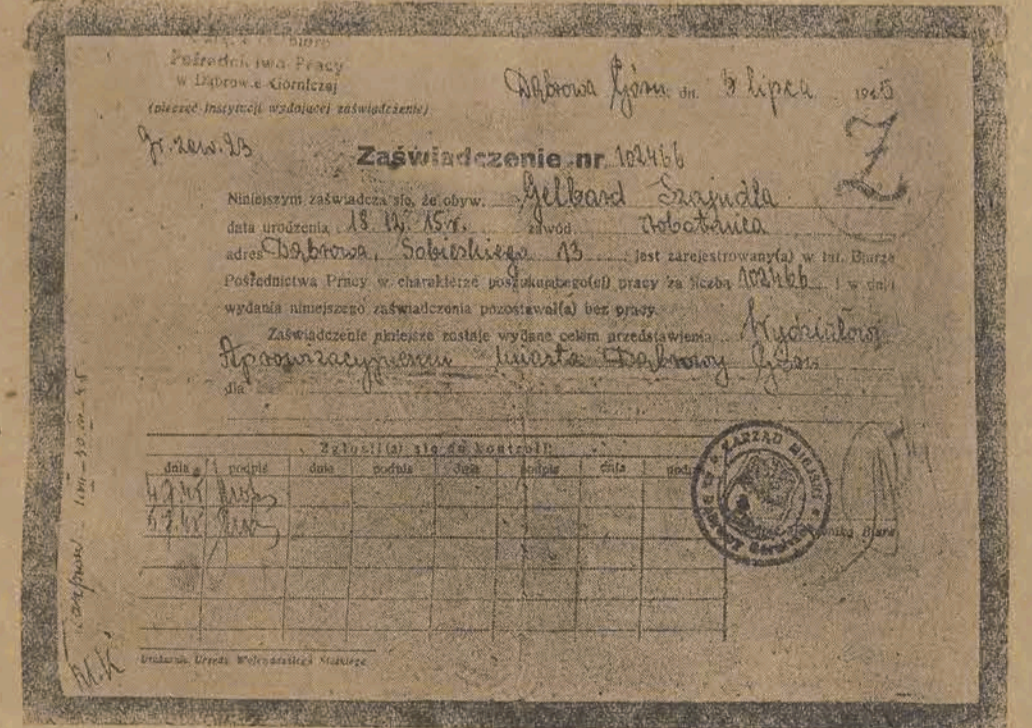 Biuro
Pośrednictwa Pracy
w Dąbrowie Górniczej
(pieczęć instytucji wydającej zaświadczenie)
Dąbrowa Górn. dn. 3 lipca 1945
gr. zaw. 23
Z
Zaświadczenie nr 102466
Niniejszym zaświadcza się, że obyw. Gelbard Szajndla
data urodzenia 18. 12. 15 r. zawód robotnica
adres Dąbrowa, Sobieskiego 13 jest zarejestrowany(a) w tut. Biurze
Pośrednictwa Pracy w charakterze poszukującego(ej) pracy za liczbą 102466 i w dniu
wydania niniejszego zaświadczenia pozostawał(a) bez pracy.
Zaświadczenie niniejsze zostaje wydane celem przedstawienia Wydziałowi
Aprowizacyjnemu miasta Dąbrowy Górn
dla
Zgłosił(a) się do kontroli:
dnia podpis dnia podpis dnia podpis dnia podpis
ZARZĄD MIEJSKI w Dąbrowie Górniczej
Biura
M.K
Drukarnia Urzędu Wojewódzkiego Śląskiego